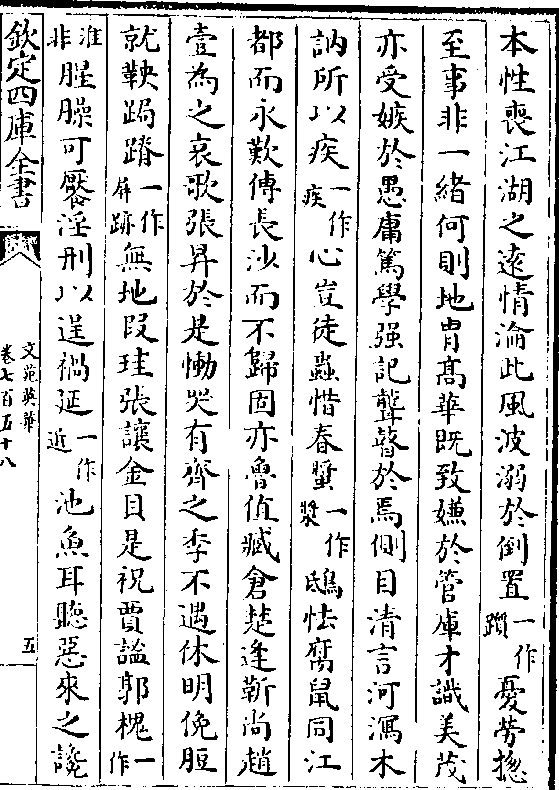 本性喪江湖之遠情淪此風波溺於倒置一作躓憂勞摠
至事非一緒何則地胄高華既致嫌於管庫才識美茂
亦受嫉於愚庸篤學强記聾瞽於焉側目清言河瀉木
訥所以疾一作疾心豈徒蟲惜春蟹一作漿鴟怯腐鼠同江
都而永歎傅長沙而不歸固亦魯值臧倉楚逢靳尚趙
壹為之哀歌張昇於是慟哭有齊之季不遇休明俛眉
就鞅跼蹐一作屏跡無地段珪張讓金貝是視賈謐郭槐一作
淮非腥臊可饜淫刑以逞禍延一作近池魚耳聽惡來之讒
欽定四庫全書
文苑英華
卷七百五十八
五